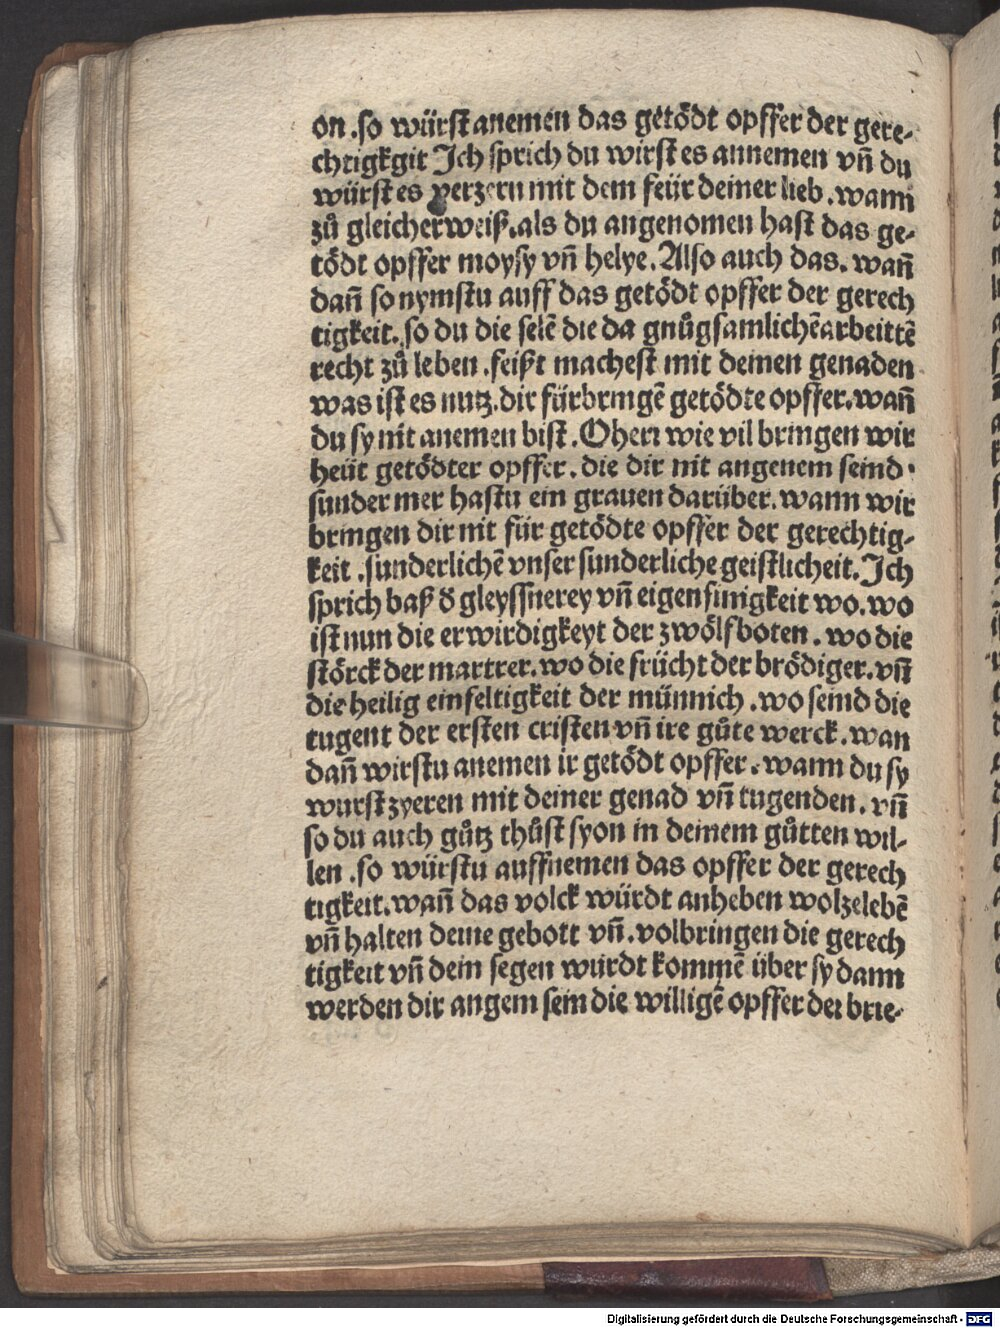 on .so würst anemen das getödt opffer der gere⸗
chtigkgit Ich sprich du wirst es annemen vñ du
würst es verzern mit dem feür deiner lieb .wann
zů gleicherweiß.als du angenomen hast das ge⸗
tödt opffer moysy vñ helye. Also auch das. wañ
dañ so nymstu auff das getödt opffer der gerech
tigkeit. so du die selē die da gnůgsamlichē arbeittē
recht zů leben .feißt machest mit deinen genaden
was ist es nutz.dir fürbringē getödte opffer. wañ
du sy nit anemen bist .O herr wie vil bringen wir
heüt getödter opffer. die dir nit angenem seind .
sunder mer hastu ein grauen darüber. wann wir
bringen dir nit für getödte opffer der gerechtig⸗
keit .sunderlichē vnser sunderliche geistlicheit. Ich
sprich baß d̄ gleyssnerey vñ eigensinigkeit wo. wo
ist nun die erwirdigkeyt der zwölfboten . wo die
störck der martrer. wo die frücht der brödiger. vñ
die heilig einfeltigkeit der münnich . wo seind die
tugent der ersten cristen vñ ire gůte werck . wan
dañ wirstu anemen ir getödt opffer . wann du sy
wurst zyeren mit deiner genad vñ tugenden . vñ
so du auch gůtz thůst syon in deinem gůtten wil⸗
len .so würstu auffnemen das opffer der gerech
tigkeit. wañ das volck würdt anheben wolzelebē
vñ halten deine gebott vñ .volbringen die gerech
tigkeit vñ dein segen wurdt kommē über sy dann
werden dir angem sein die willigē opffer der brie⸗
Digitalisierung gefördert durch die Deutsche Forschungsgemeinschaft - DFG